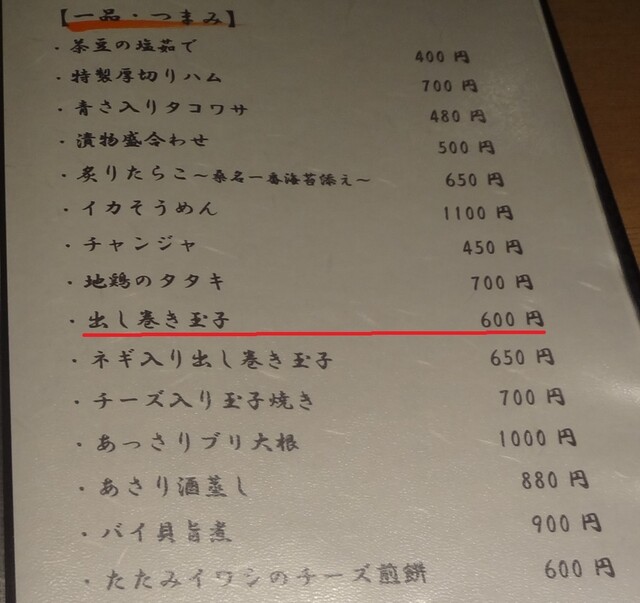 【一品・つまみ】
・茶豆の塩茹で 400円
・特製厚切りハム 700円
・青さ入りタコワサ 480円
・漬物盛合わせ 500円
・炙りたらこ～桑名一番海苔添え～ 650円
・イカそうめん 1100円
・チャンジャ 450円
・地鶏のタタキ 700円
・出し巻き玉子 600円
・ネギ入り出し巻き玉子 650円
・チーズ入り玉子焼き 700円
・あっさりブリ大根 1000円
・あさり酒蒸し 880円
・バイ貝旨煮 900円
・たたみイワシのチーズ煎餅 600円